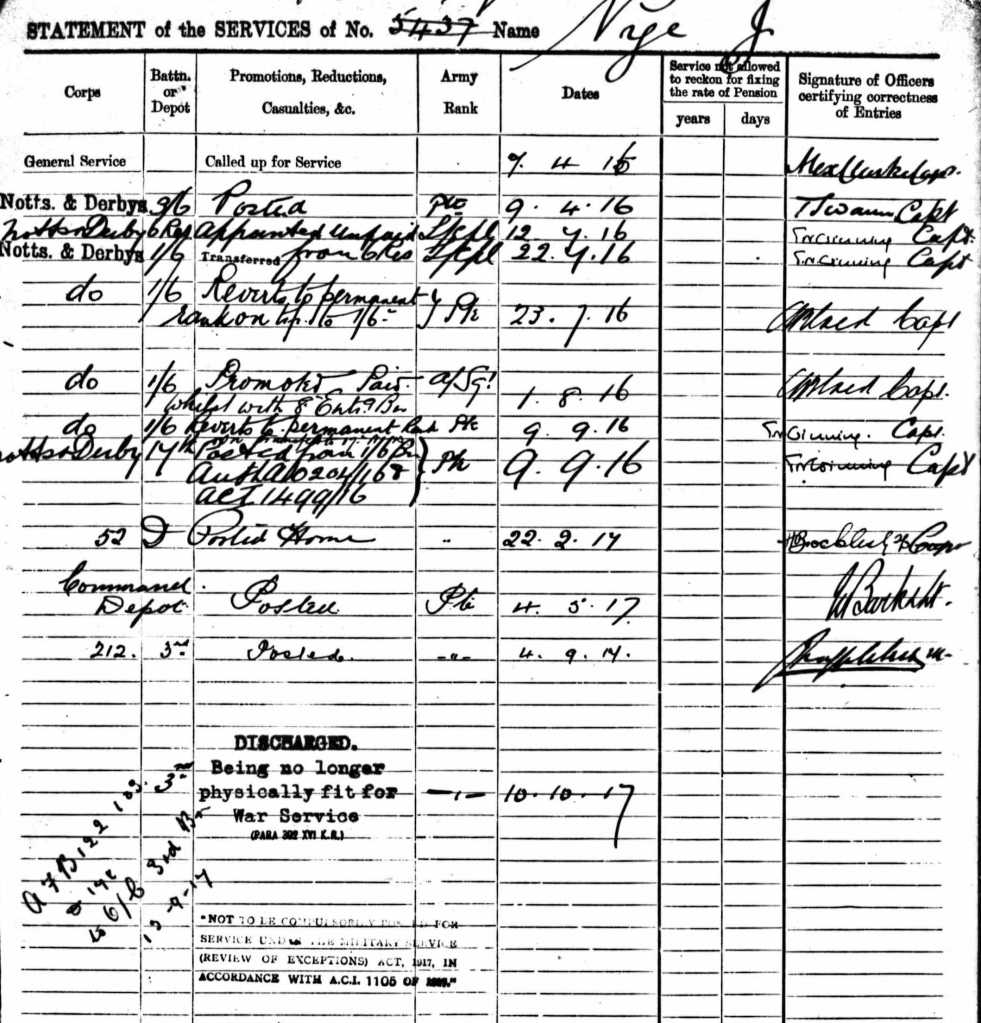 STATEMENT of the SERVICES of No. 5437 Name Nye J
Corps
Battn. or Depôt
Promotions, Reductions, Casualties, &c.
Army Rank
Dates
Service not allowed to reckon for fixing the rate of Pension
years days
Signature of Officers certifying correctness of Entries
General Service Called up for Service 7 4 16
Notts. & Derbys 3/6 Posted Pte 9. 4. 16 Capt
Notts & Derby 6 Res Appointed unpaid L/Cpl 12 7. 16 Capt.
Notts. & Derbys 1/6 Transferred from 6 Res L/Cpl 22. 7. 16 Capt
do 1/6 Reverts to permanent
rank on to 1/6 } Pte 23. 7. 16 Capt
do 1/6 Promoted Paid. A/Sgt 1. 8. 16 Capt.
whilst with 8 Bn
do 1/6 Reverts to permanent Rank Pte 9 9. 16 Capt.
Notts & Derby 17th Posted from 1/6 Bn } Pte 9. 9. 16 Capt
Auth AO204/168
ACI. 1499/16
52 D Posted Home " 22. 2. 17
Command Depot Posted Pte 4. 5. 17
212. 3rd Posted. -"- 4. 9. 17.
DISCHARGED.
Being no longer
3rd physically fit for -"- 10. 10. 17
War Service
(PARA 392 XVI K.R.)
A F B 122 103.
3rd Bn
13-9-17
"NOT TO BE COMPULSORILY POSTED FOR
SERVICE UNDER THE MILITARY SERVICE
(REVIEW OF EXCEPTIONS) ACT, 1917, IN
ACCORDANCE WITH A.C.I. 1105 OF